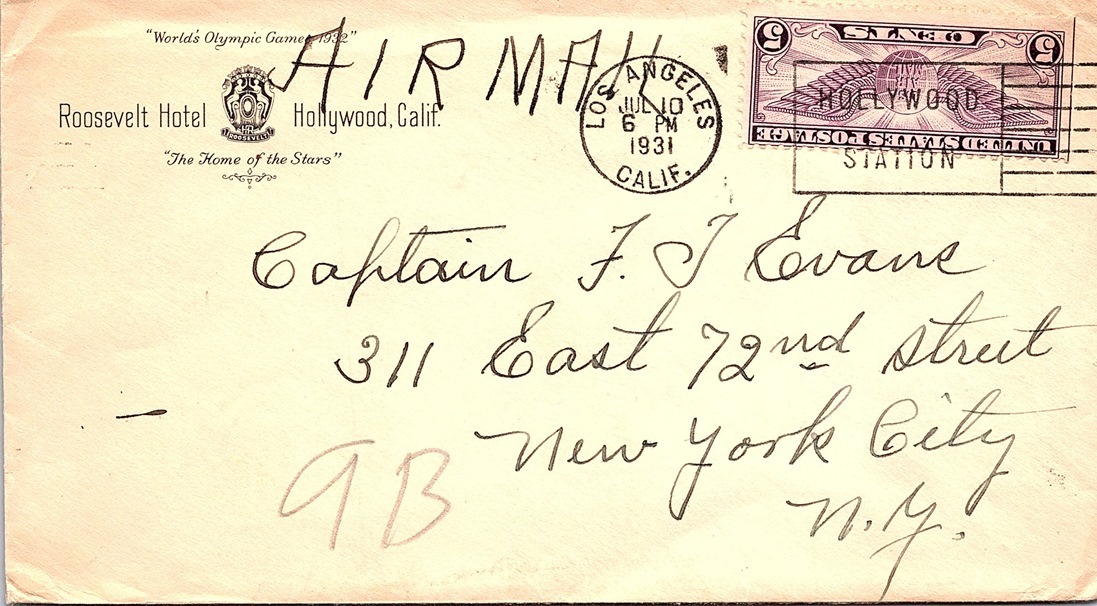 "World's Olympic Games 1932"
AIR MAIL
Roosevelt Hotel Hollywood, Calif.
HR
ROOSEVELT
"The Home of the Stars"
LOS ANGELES
JUL 10
6 PM
1931
CALIF.
5 CENTS 5
UNITED STATES POSTAGE
HOLLYWOOD
STATION
Captain F. J Evans
311 East 72nd street
New York City
N.Y.
9B